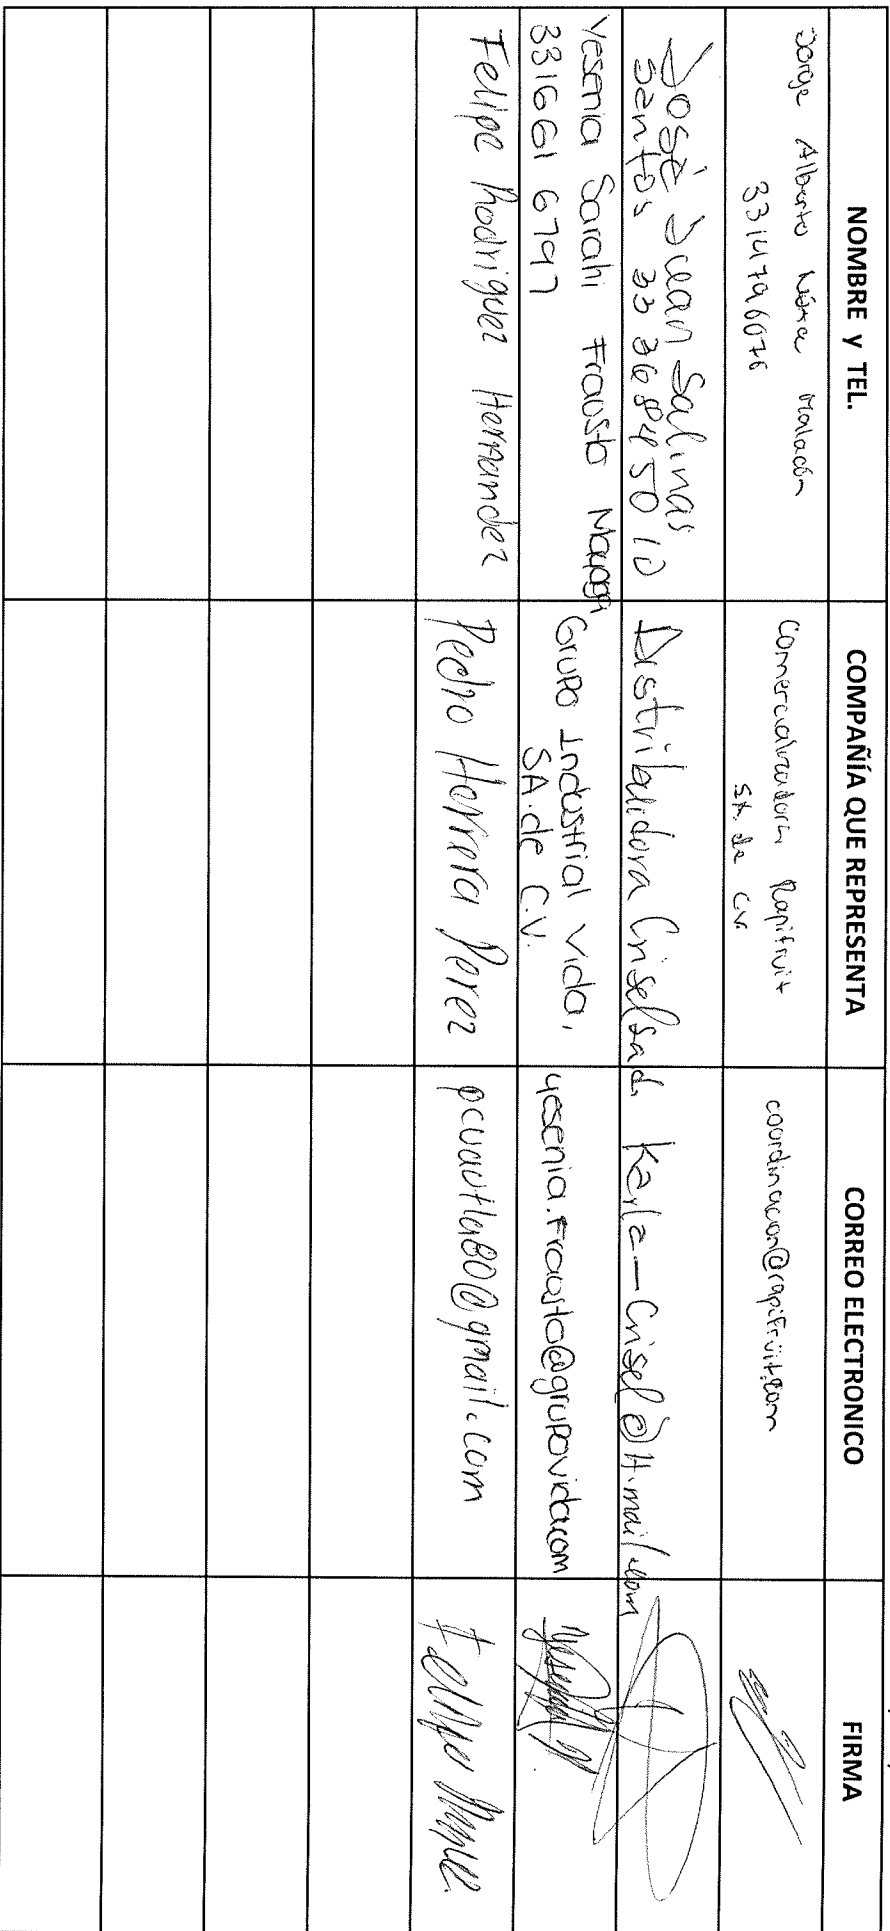 NOMBRE y TEL.
COMPAÑÍA QUE REPRESENTA
CORREO ELECTRONICO
FIRMA
Jorge Alberto Malacón
3314796076
Comercializadora Rapifruit
S.A. de C.V.
coordinacion@rapifruit.com
José Juan Salinas
Santos 33 36 84 50 10
Distribuidora Crisel sa d
Karla-Crisel@H.mail.com
Yesenia Sarahi Frausto
331661 6797
Grupo Industrial Vida,
SA. de C.V.
yesenia.Frausto@grupovida.com
Felipe Rodriguez Hernandez
Pedro Herrera Perez
pcuautla80@gmail.com
Felipe